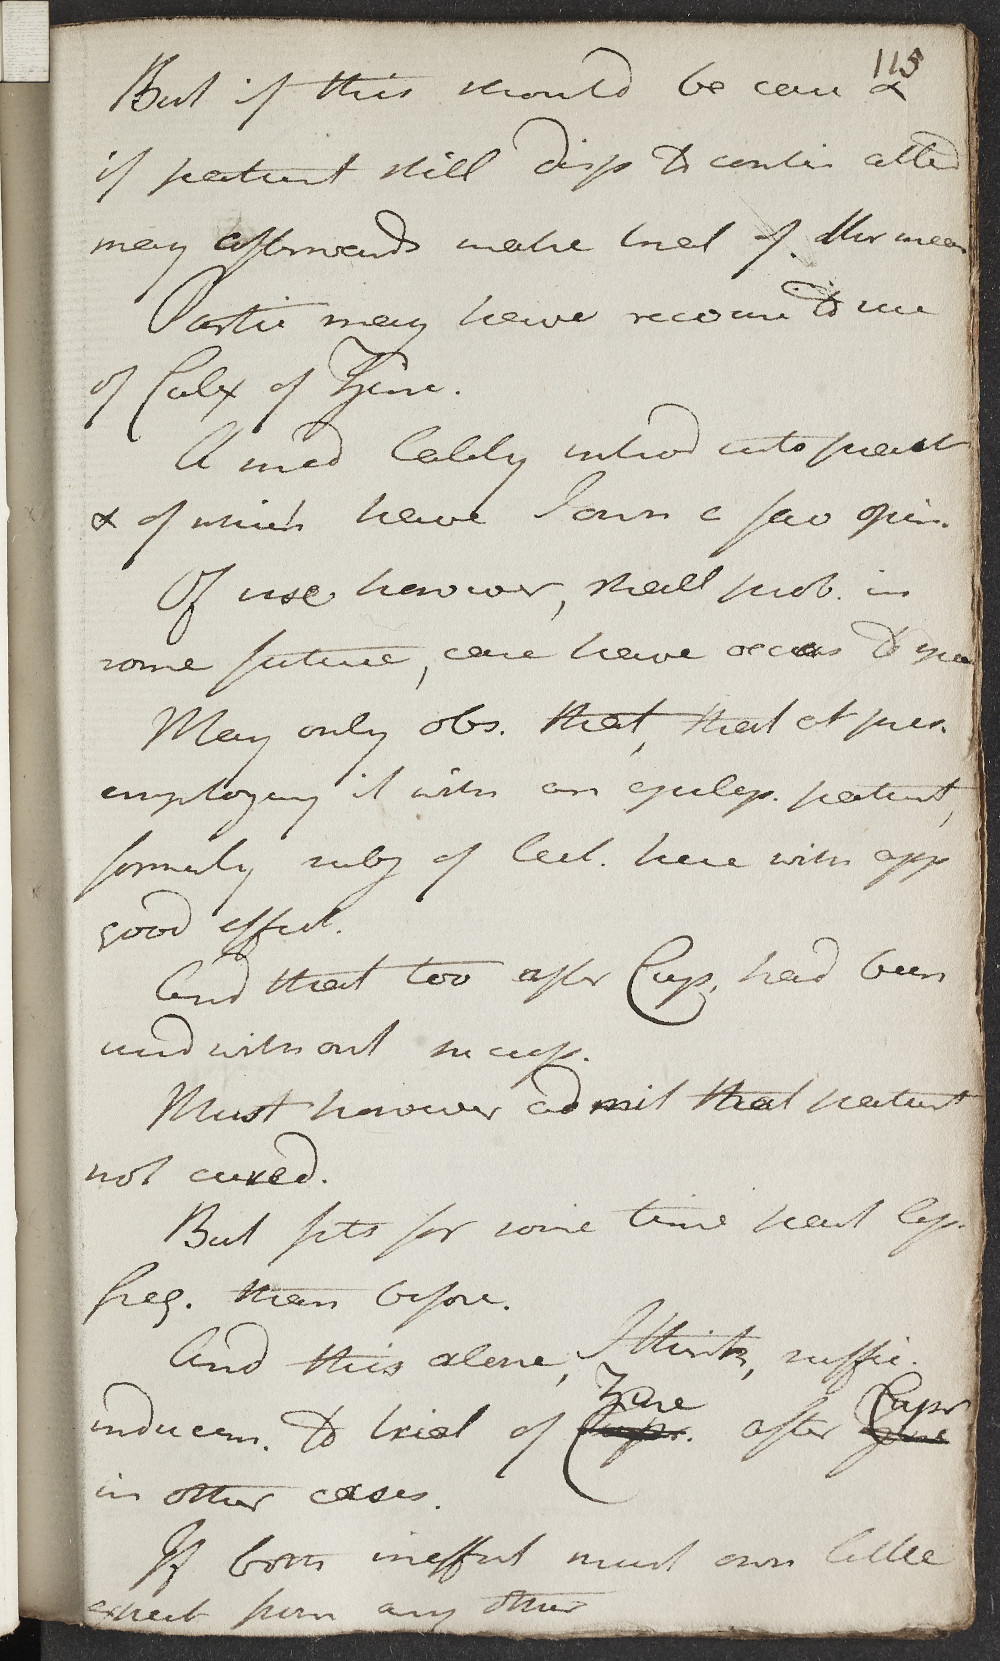 115
But if this should be case &
if patient still disp to contin atten
may afterwards make trial of other mean
Partic may have recourse to use
of Calx of Zinc.
A med lately introd into pract
& of which have I own a fav opin.
Of use however, shall prob. in
some future, case have occas to spea
May only obs. that, that at pres.
employing it with an epilep. patient,
formerly subj of lect. here with app
good effect.
And that too after Cup. had been
used without success.
Must however admit that patient
not cured.
But fits for some time past less
freq. than before.
And this alone, I think, suffic.
inducem. to trial of Zinc Cupr. after Cupr Zinc
in other cases.
If both ineffect must own little
expect from any other